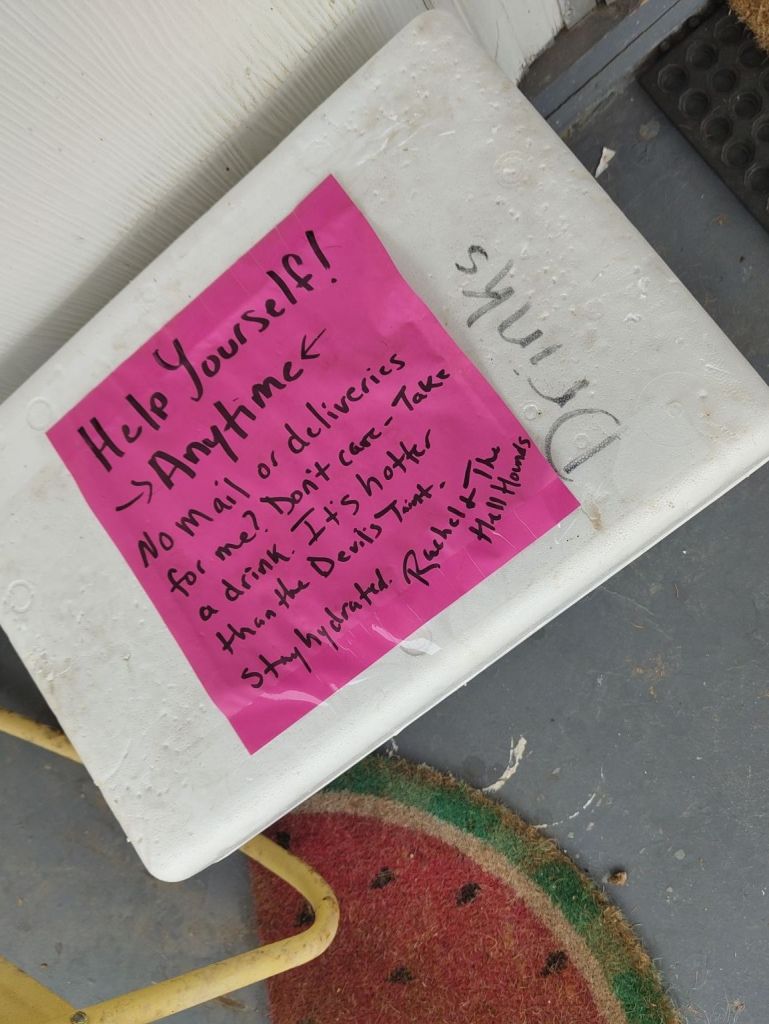 Help Yourself!
→Anytime←
No mail or deliveries
for me? Don't care - Take
a drink. It's hotter
than the Devils Taint.
Stay hydrated. Rachel & The
Hell Hounds
Drinks